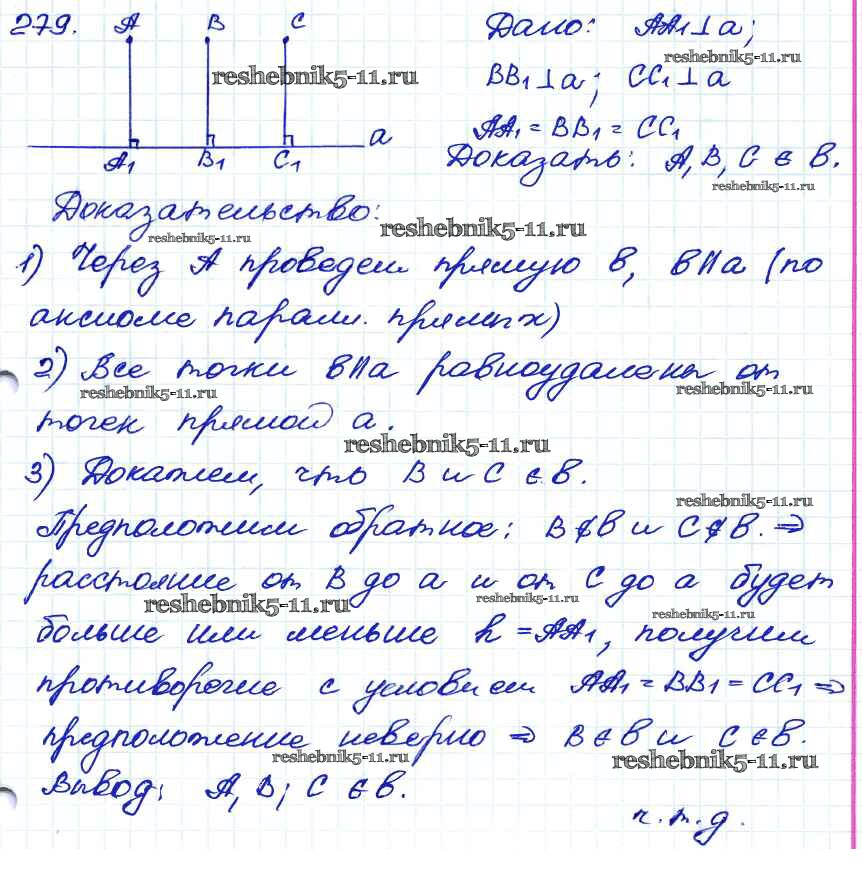 279. A B C Дано: AA₁ ⊥ a;
reshebnik5-11.ru reshebnik5-11.ru
BB₁ ⊥ a; CC₁ ⊥ a
AA₁ = BB₁ = CC₁
a
A₁ B₁ C₁ Доказать: A, B, C ∈ в.
reshebnik5-11.ru
Доказательство:
reshebnik5-11.ru reshebnik5-11.ru
1) Через A проведем прямую в, в||a (по
аксиоме паралл. прямых)
2) Все точки в||a равноудалены от
reshebnik5-11.ru reshebnik5-11.ru
точек прямой a.
reshebnik5-11.ru
3) Докажем, что B и C ∈ в.
reshebnik5-11.ru
Предположим обратное: B ∉ в и C ∉ в. ⇒
расстояние от B до a и от C до a будет
reshebnik5-11.ru reshebnik5-11.ru
reshebnik5-11.ru
больше или меньше h = AA₁, получим
противоречие с условием AA₁ = BB₁ = CC₁ ⇒
предположение неверно ⇒ B ∈ в и C ∈ в.
reshebnik5-11.ru reshebnik5-11.ru
Вывод: A, B, C ∈ в.
ч.т.д.